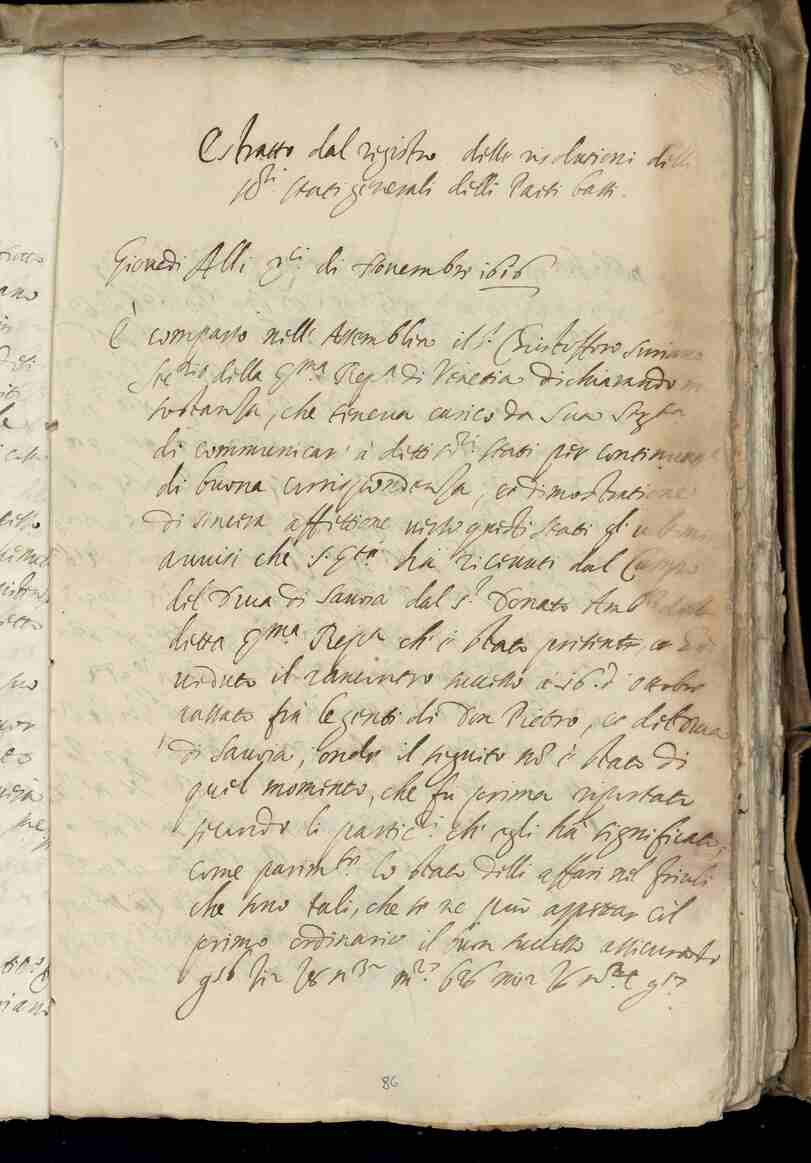 Estratto dal registro delle risolutioni delli
Sri Stati generali delli Paesi bassi.
Giovedi Alli di Novembre 1616
È comparso nell' Assemblea il Sr. Christofforo Suriano
Secrio della Sma Repca di Venetia dichiarando in
sostanza, che teneva carico da Sua Sertà
di communicar à detti Sri Stati per continuat
di buona corrispondenza, et dimostratione
di sincera affettione verso questi Stati gl'ultimi
avvisi che S. Sertà ha ricevuti dal Campo
del Duca di Savoia dal Sr Donato Amb
detta Sma Repca ch'è stato presente, et hà
veduto il rancontro successo à 16 d'ottobre
passato frà le genti di Don Pietro, et del Duca
di Savoia, onde il seguito nō è stato di
quel momento, che fu prima riportato
secondo li particri ch'egli hà significato;
come parimte lo stato delli affari nel Friuli
che sono tali, che se ne può aspettar col
primo ordinario il buon successo assicurato
86